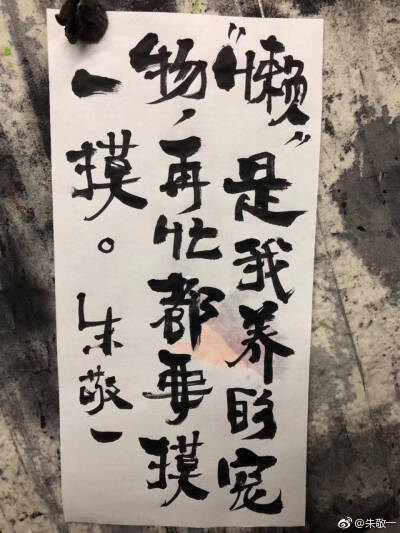 “懒”是我养的宠
物，再忙都要摸
一摸。朱敬一
@朱敬一